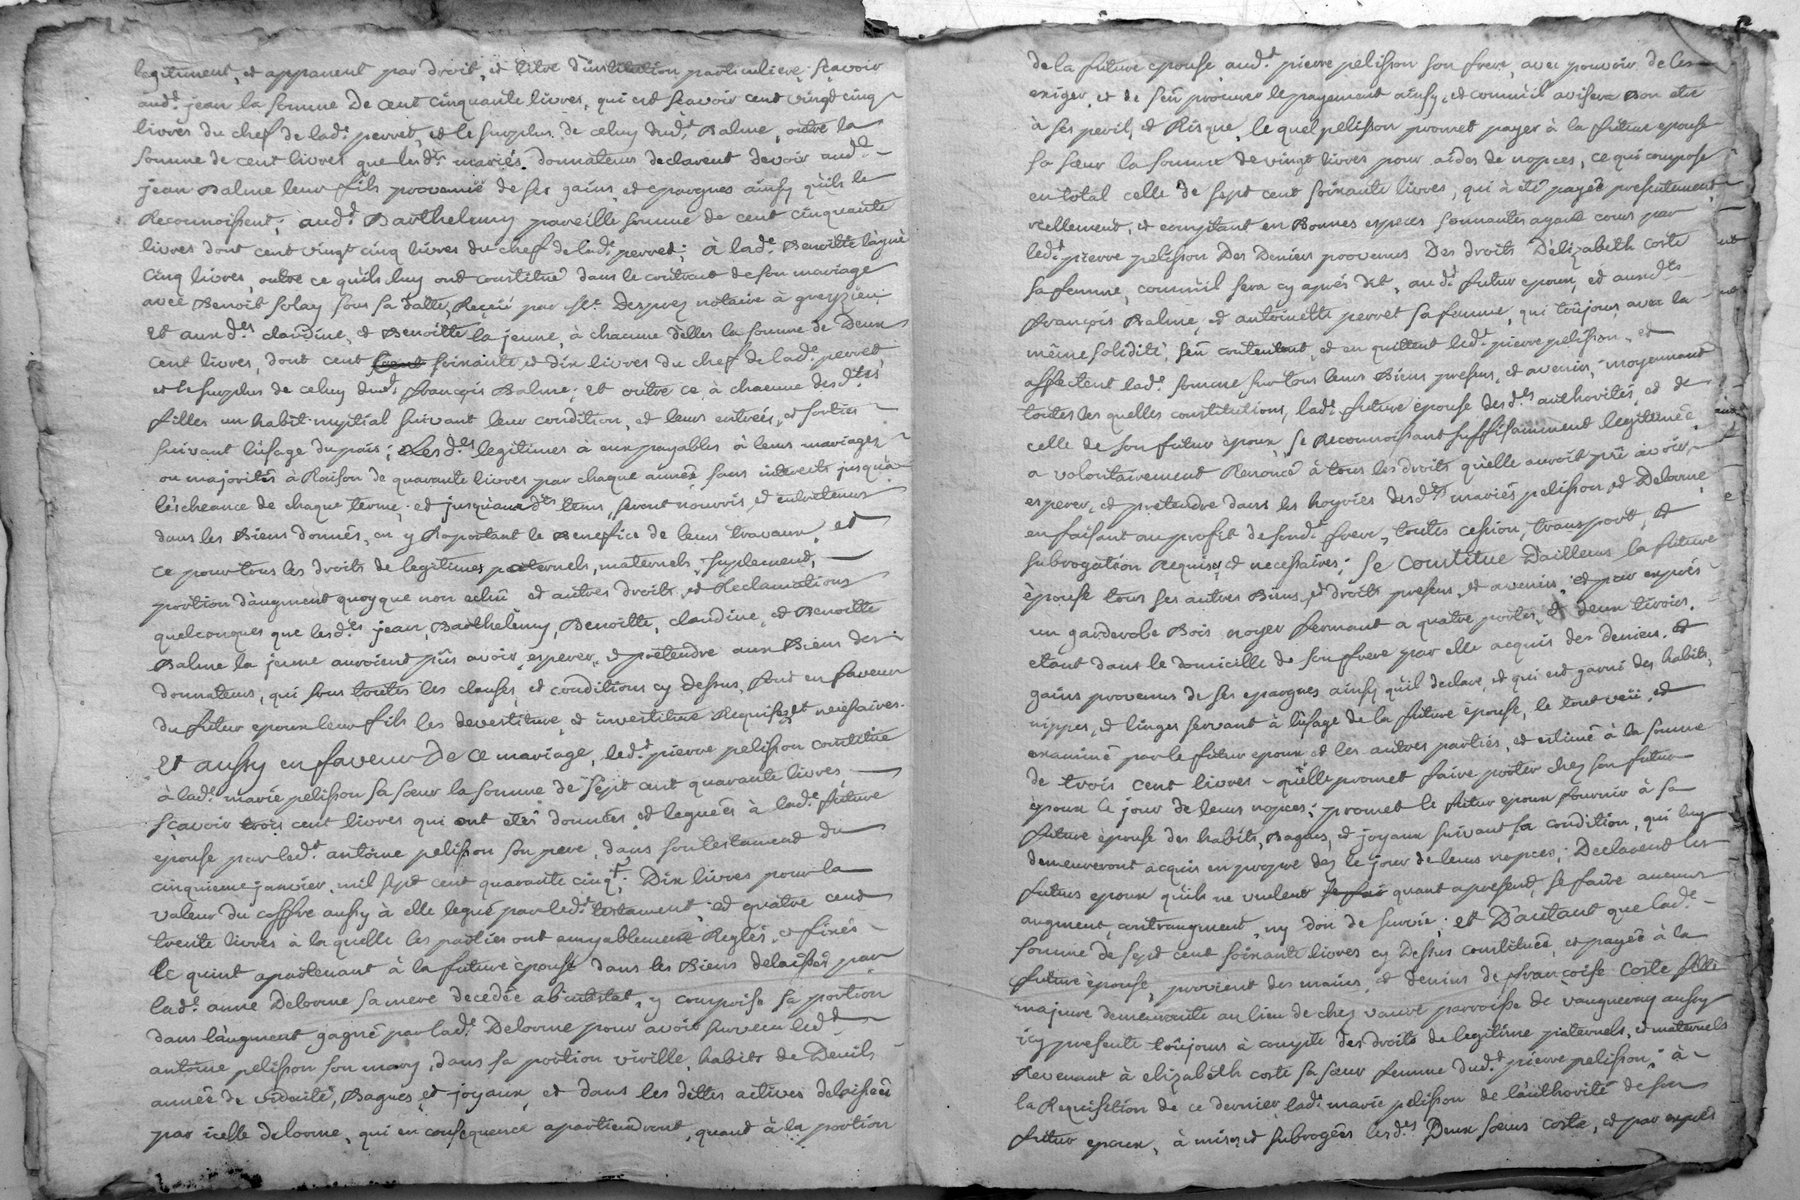 legitiment, et appanent par droit, et titre d'institution particuliere, sçavoir
aud.t jean la somme de cent cinquante livres, qui est scavoir cent vingt cinq
livres du chef de lad.e perret, et le surplus de celuy dud.t Balme, outre la
somme de cent livres que lesd.ts mariés donnateurs declarent devoir aud.t
jean Balme leur fils provenüe de ses gains, et epargnes ainsy qu'ils le
Reconnoissent; aud.t Barthelemy pareille somme de cent cinquante
livres dont cent vingt cinq livres du chef de lad.e perret; à lad.e Benoitte l'aynée
cinq livres, outre ce qu'ils luy ont constitué dans le contract de son mariage
avec Benoit Solay sous sa datte, Reçeu par m.e Desprez notaire à greyzieu
et aux d.es claudine, et Benoitte la jeune, à chacune d'elles la somme de Deux
cent livres, dont cent soixante, et dix livres du chef de lad.e perret,
et le surplus de celuy dud.t françois Balme; et outre ce, à chacune desd.tes
filles un habit nuptial suivant leur condition, et leurs entrées, et sorties
suivant l'usage du païs; Lesd.es legitimes à eux payables à leurs mariages
ou majorités à Raison de quarante livres par chaque année sans interests jusqu'a
l'escheance de chaque terme, et jusqu'auxd.ts tems seront nouris, et entretenus
dans les Biens donnés, en y Raportant le Benefice de leurs travaux, et
ce pour tous les droits de legitimes paternels, maternels, suplement,
portion d'augment quoyque non echû et autres droits, et Reclamations
quelconques que lesd.ts jean, Barthelemy, Benoitte, claudine, et Benoitte
Balme la jeune auroient pûs avoir, esperer, et pretendre aux Biens des
donnateurs, qui sous toutes les clauses, et conditions cy dessus, font en faveur
du futur epoux leur fils les devestiture, et investiture Requises et necessaires.
Et aussy en faveur de ce mariage, led.t pierre pelisson constitue
à lad.e marie pelisson sa sœur la somme de sept cent quarante livres,
sçavoir trois cent livres qui ont etés données, et leguées à lad.e future
epouse par led.t antoine pelisson son pere, dans son testament du
cinquieme janvier, mil sept cent quarante cinq; Dix livres pour la
valeur du coffre aussy à elle legué par led.t testament; et quatre cent
trente livres à laquelle les parties ont amyablement Reglés, et fixés
le quint apartenant à la future épouse dans les Biens delaissés par
lad.e anne Delorme sa mere decedée ab intestat, y comprise sa portion
dans l'augment gagné par lad.e Delorme pour avoir survecu led.t
antoine pelisson son mary, dans sa portion viville, habits de Deuils,
année de viduité, Bagues et joyaux, et dans les dettes actives delaissées
par icelle delorme, qui en consequence apartiendront, quant à la portion
de la future epouse, aud.t pierre pelisson son frere, avec pouvoir de les
exiger, et de s'en procurer le payement ainsy, et comm'il avisera Bon etre
à ses peril, et Risque, le quel pelisson promet payer à la future epouse
sa sœur la somme de vingt livres pour aides de nopces, ce qui compose
en total celle de sept cent soixante livres, qui à eté payée presentement,
réellement, et comptant en Bonnes especes sonnantes ayant cours par
led.t pierre pelisson Des Deniers provenus Des droits D'élizabeth coste
sa femme, comm'il sera cy aprés dit, aud.t futur epoux, et auxd.ts
françois Balme, et antoinette perret sa femme, qui toûjours avec la
même solidité, s'en contentent, et en quittent led.t pierre pelisson, et
affectent lad.e somme sur tous leurs Biens presens, et avenirs, moyennant
toutes les quelles constitutions, lad.e future épouse desd.es authorités, et de
celle de son futur époux, se Reconnoissant suffisamment legitimée
a volontairement Renoncé à tous les droits qu'elle auroit pû avoir,
esperer, et pretendre dans les hoyries desd.ts mariés pelisson, et Delorme,
en faisant au profit de sond.t frere, toutes cession, transport, et
subrogation Requises, et necessaires; Se constitue D'ailleurs la future
épouse tous ses autres Biens, et droits presens, et avenirs, et par exprés
un garderobe Bois noyer fermant a quatre portes, et deux tiroirs,
etant dans le domicille de son frere par elle acquis des deniers, et
gains provenus de ses epargnes ainsy qu'il declare, et qui est garni des habits,
nippes, et linges servant à l'usage de la future épouse, le tout veü, et
examiné par le futur epoux et les autres parties, et estimé à la somme
de trois cent livres qu'elle promet faire porter chez son futur
époux le jour de leurs nopces; promet le futur epoux fournir à sa
future épouse des habits, Bagues, et joyaux suivant sa condition, qui luy
demeureront acquis en propre dez le jour de leurs nopces; Declarent les
futurs epoux qu'ils ne veulent quant apresent, se faire aucuns
augment, contraugment, ny don de survie; et D'autant que lad.e
somme de sept cent soixante livres cy Dessus constituée, et payée à la
future épouse, provient des mains, et deniers de françoise Coste fille
majeure demeurante au lieu de chez vaure parroisse de vaugneray aussy
icy presente toûjours à compte des droits de legitime paternels, et maternels
Revenant à elizabeth coste sa sœur femme dud.t pierre pelisson; à
la Requisition de ce dernier lad.e marie pelisson de l'authorité de son
futur epoux, à mises, et subrogées lesd.es Deux sœurs coste, et par exprés